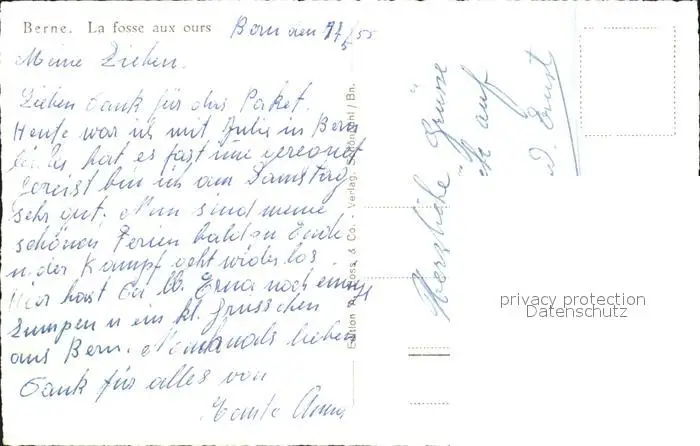 Berne. La fosse aux ours
Bern den 17/5 55
Meine Lieben.
Lieben Dank für das Paket.
Heute war ich mit Julie in Bern
hat es fast nie geregnet
Gereist bin ich am Samstag
sehr gut. Nun sind meine
schönen Ferien bald zu Ende
u. der Kampf geht wieder los.
Hier hast Du lb. Erna noch einige
Lumpen u ein kl. Grüsschen
aus Bern. Nochmals lieben
Dank für alles von
Tante Anna
Edition & Co. - Verlag, Bn.
Herzliche Grüsse
auf
Ernst
privacy protection
Datenschutz